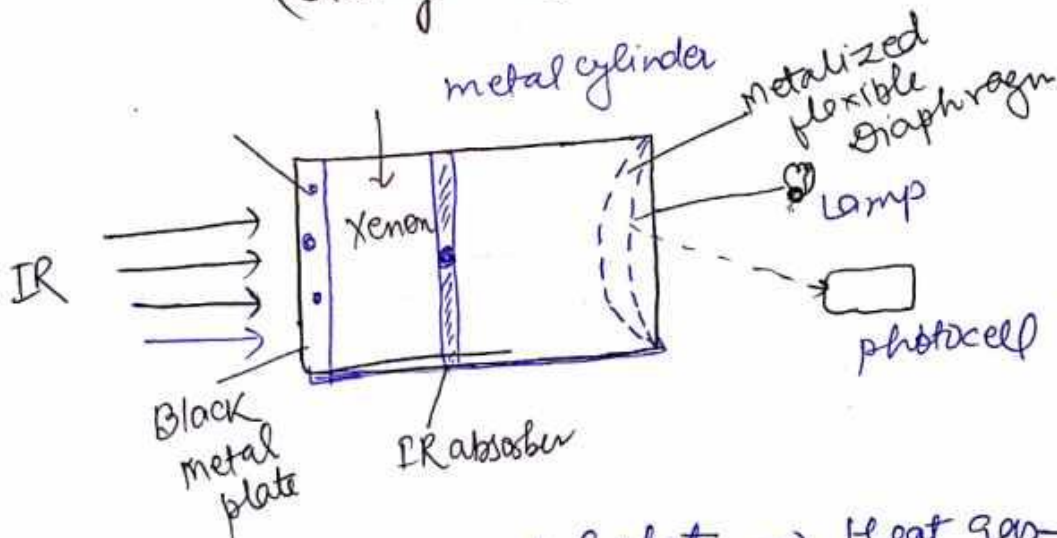 metal cylinder
metalized
flexible
Diaphragm
Xenon
Lamp
IR
photocell
Black
metal
plate
IR absorber
Heat gas